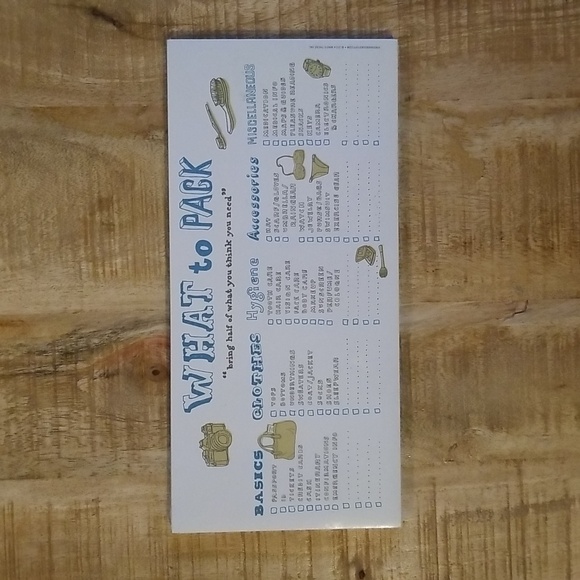 WHAT to PACK
"bring half of what you think you need"
BASICS
PASSPORT
ID
TICKETS
CREDIT CARDS
CASH
ITINERARY
CONFIRMATIONS
EMERGENCY INFO
CLOTHES
TOPS
BOTTOMS
UNDERTHINGS
SWEATERS
COAT/JACKET
SOCKS
SHOES
SLEEPWEAR
Hygiene
TOOTH CARE
HAIR CARE
VISION CARE
FACE CARE
BODY CARE
MAKEUP
SUNSCREEN
PERFUME/
COLOGNE
Accessories
HAT
SCARF/GLOVES
UMBRELLA/
RAINGEAR
WATCH
JEWELRY
PURSE/BAGS
SWIMSUIT
EXERCISE GEAR
MISCELLANEOUS
MEDICATION
MEDICAL INFO
MAPS & GUIDES
PLEASURE READING
SNACKS
KEYS
CAMERA
ELECTRONICS
& CHARGERS